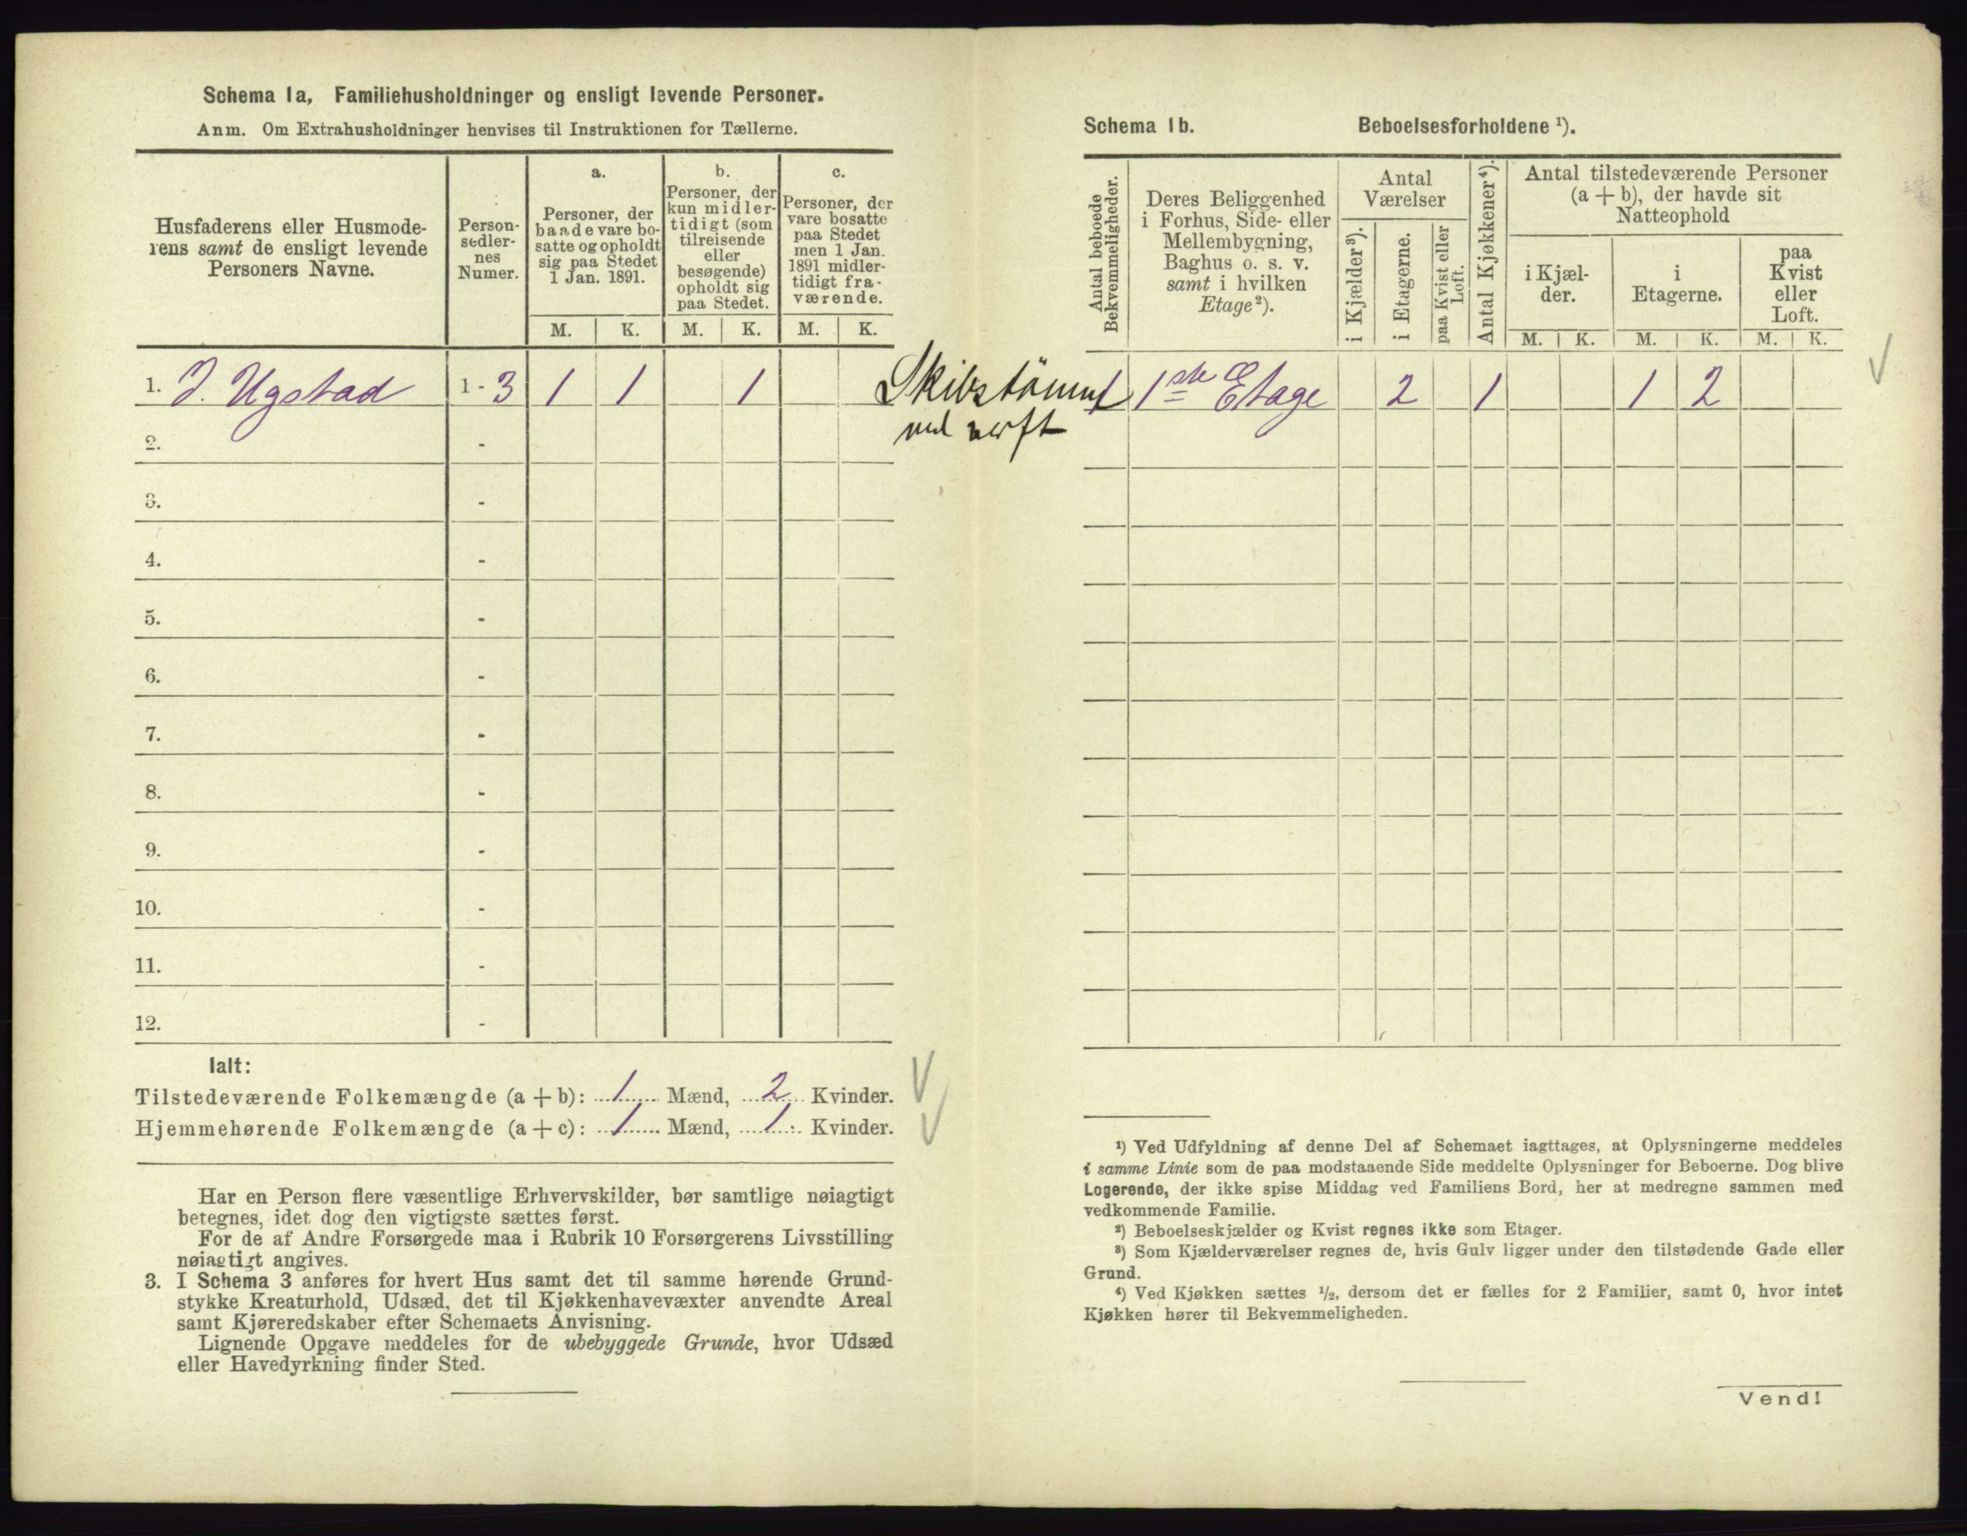 Schema 1a, Familiehusholdninger og ensligt levende Personer.
Anm. Om Extrahusholdninger henvises til Instruktionen for Tællerne.
Husfaderens eller Husmode-
rens samt de ensligt levende
Personers Navne.
Person-
sedler-
nes
Numer.
a.
Personer, der
baade vare bo-
satte og opholdt
sig paa Stedet
1 Jan. 1891.
b.
Personer, der
kun midler-
tidigt (som
tilreisende
eller
besøgende)
opholdt sig
paa Stedet.
c.
Personer, der
vare bosatte
paa Stedet
men 1 Jan.
1891 midler-
tidigt fra-
værende.
M. K. M. K. M. K.
1. J. Ugstad 1 - 3 1 1 1
2. -
3. -
4. -
5. -
6. -
7. -
8. -
9. -
10. -
11. -
12. -
Ialt:
Tilstedeværende Folkemængde (a + b): 1 Mænd, 2 Kvinder.
Hjemmehørende Folkemængde (a + c): 1 Mænd, 1 Kvinder.
Har en Person flere væsentlige Erhvervskilder, bør samtlige nøiagtigt
betegnes, idet dog den vigtigste sættes først.
For de af Andre Forsørgede maa i Rubrik 10 Forsørgerens Livsstilling
nøiagtigt angives.
3. I Schema 3 anføres for hvert Hus samt det til samme hørende Grund-
stykke Kreaturhold, Udsæd, det til Kjøkkenhavevæxter anvendte Areal
samt Kjøreredskaber efter Schemaets Anvisning.
Lignende Opgave meddeles for de ubebyggede Grunde, hvor Udsæd
eller Havedyrkning finder Sted.
ved verft
Schema 1b. Beboelsesforholdene ¹).
Antal beboede
Bekvemmeligheder.
Deres Beliggenhed
i Forhus, Side- eller
Mellembygning,
Baghus o. s. v.
samt i hvilken
Etage²).
Antal
Værelser
i Kjælder³).
i Etagerne.
paa Kvist eller
Loft.
Antal Kjøkkener⁴).
Antal tilstedeværende Personer
(a + b), der havde sit
Natteophold
i Kjæl-
der.
i
Etagerne.
paa
Kvist
eller
Loft.
M. K. M. K. M. K.
1 1ste Etage 2 1 1 2
¹) Ved Udfyldning af denne Del af Schemaet iagttages, at Oplysningerne meddeles
i samme Linie som de paa modstaaende Side meddelte Oplysninger for Beboerne. Dog blive
Logerende, der ikke spise Middag ved Familiens Bord, her at medregne sammen med
vedkommende Familie.
²) Beboelseskjælder og Kvist regnes ikke som Etager.
³) Som Kjælderværelser regnes de, hvis Gulv ligger under den tilstødende Gade eller
Grund.
⁴) Ved Kjøkken sættes ½, dersom det er fælles for 2 Familier, samt 0, hvor intet
Kjøkken hører til Bekvemmeligheden.
Vend!